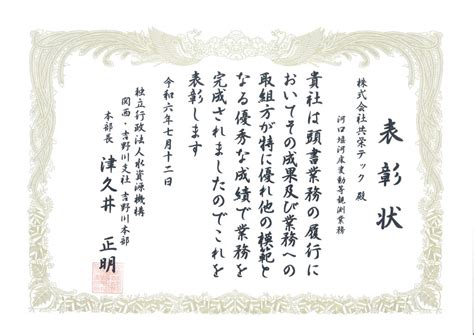 表彰状
株式会社共栄テック 殿
河口堰河床変動等観測業務
貴社は頭書業務の履行に
おいてその成果及び業務への
取組方が特に優れ他の模範と
なる優秀な成績で業務を
完成されましたのでこれを
表彰します
令和六年七月十二日
独立行政法人水資源機構
関西・吉野川支社 吉野川本部
本部長 津久井 正明